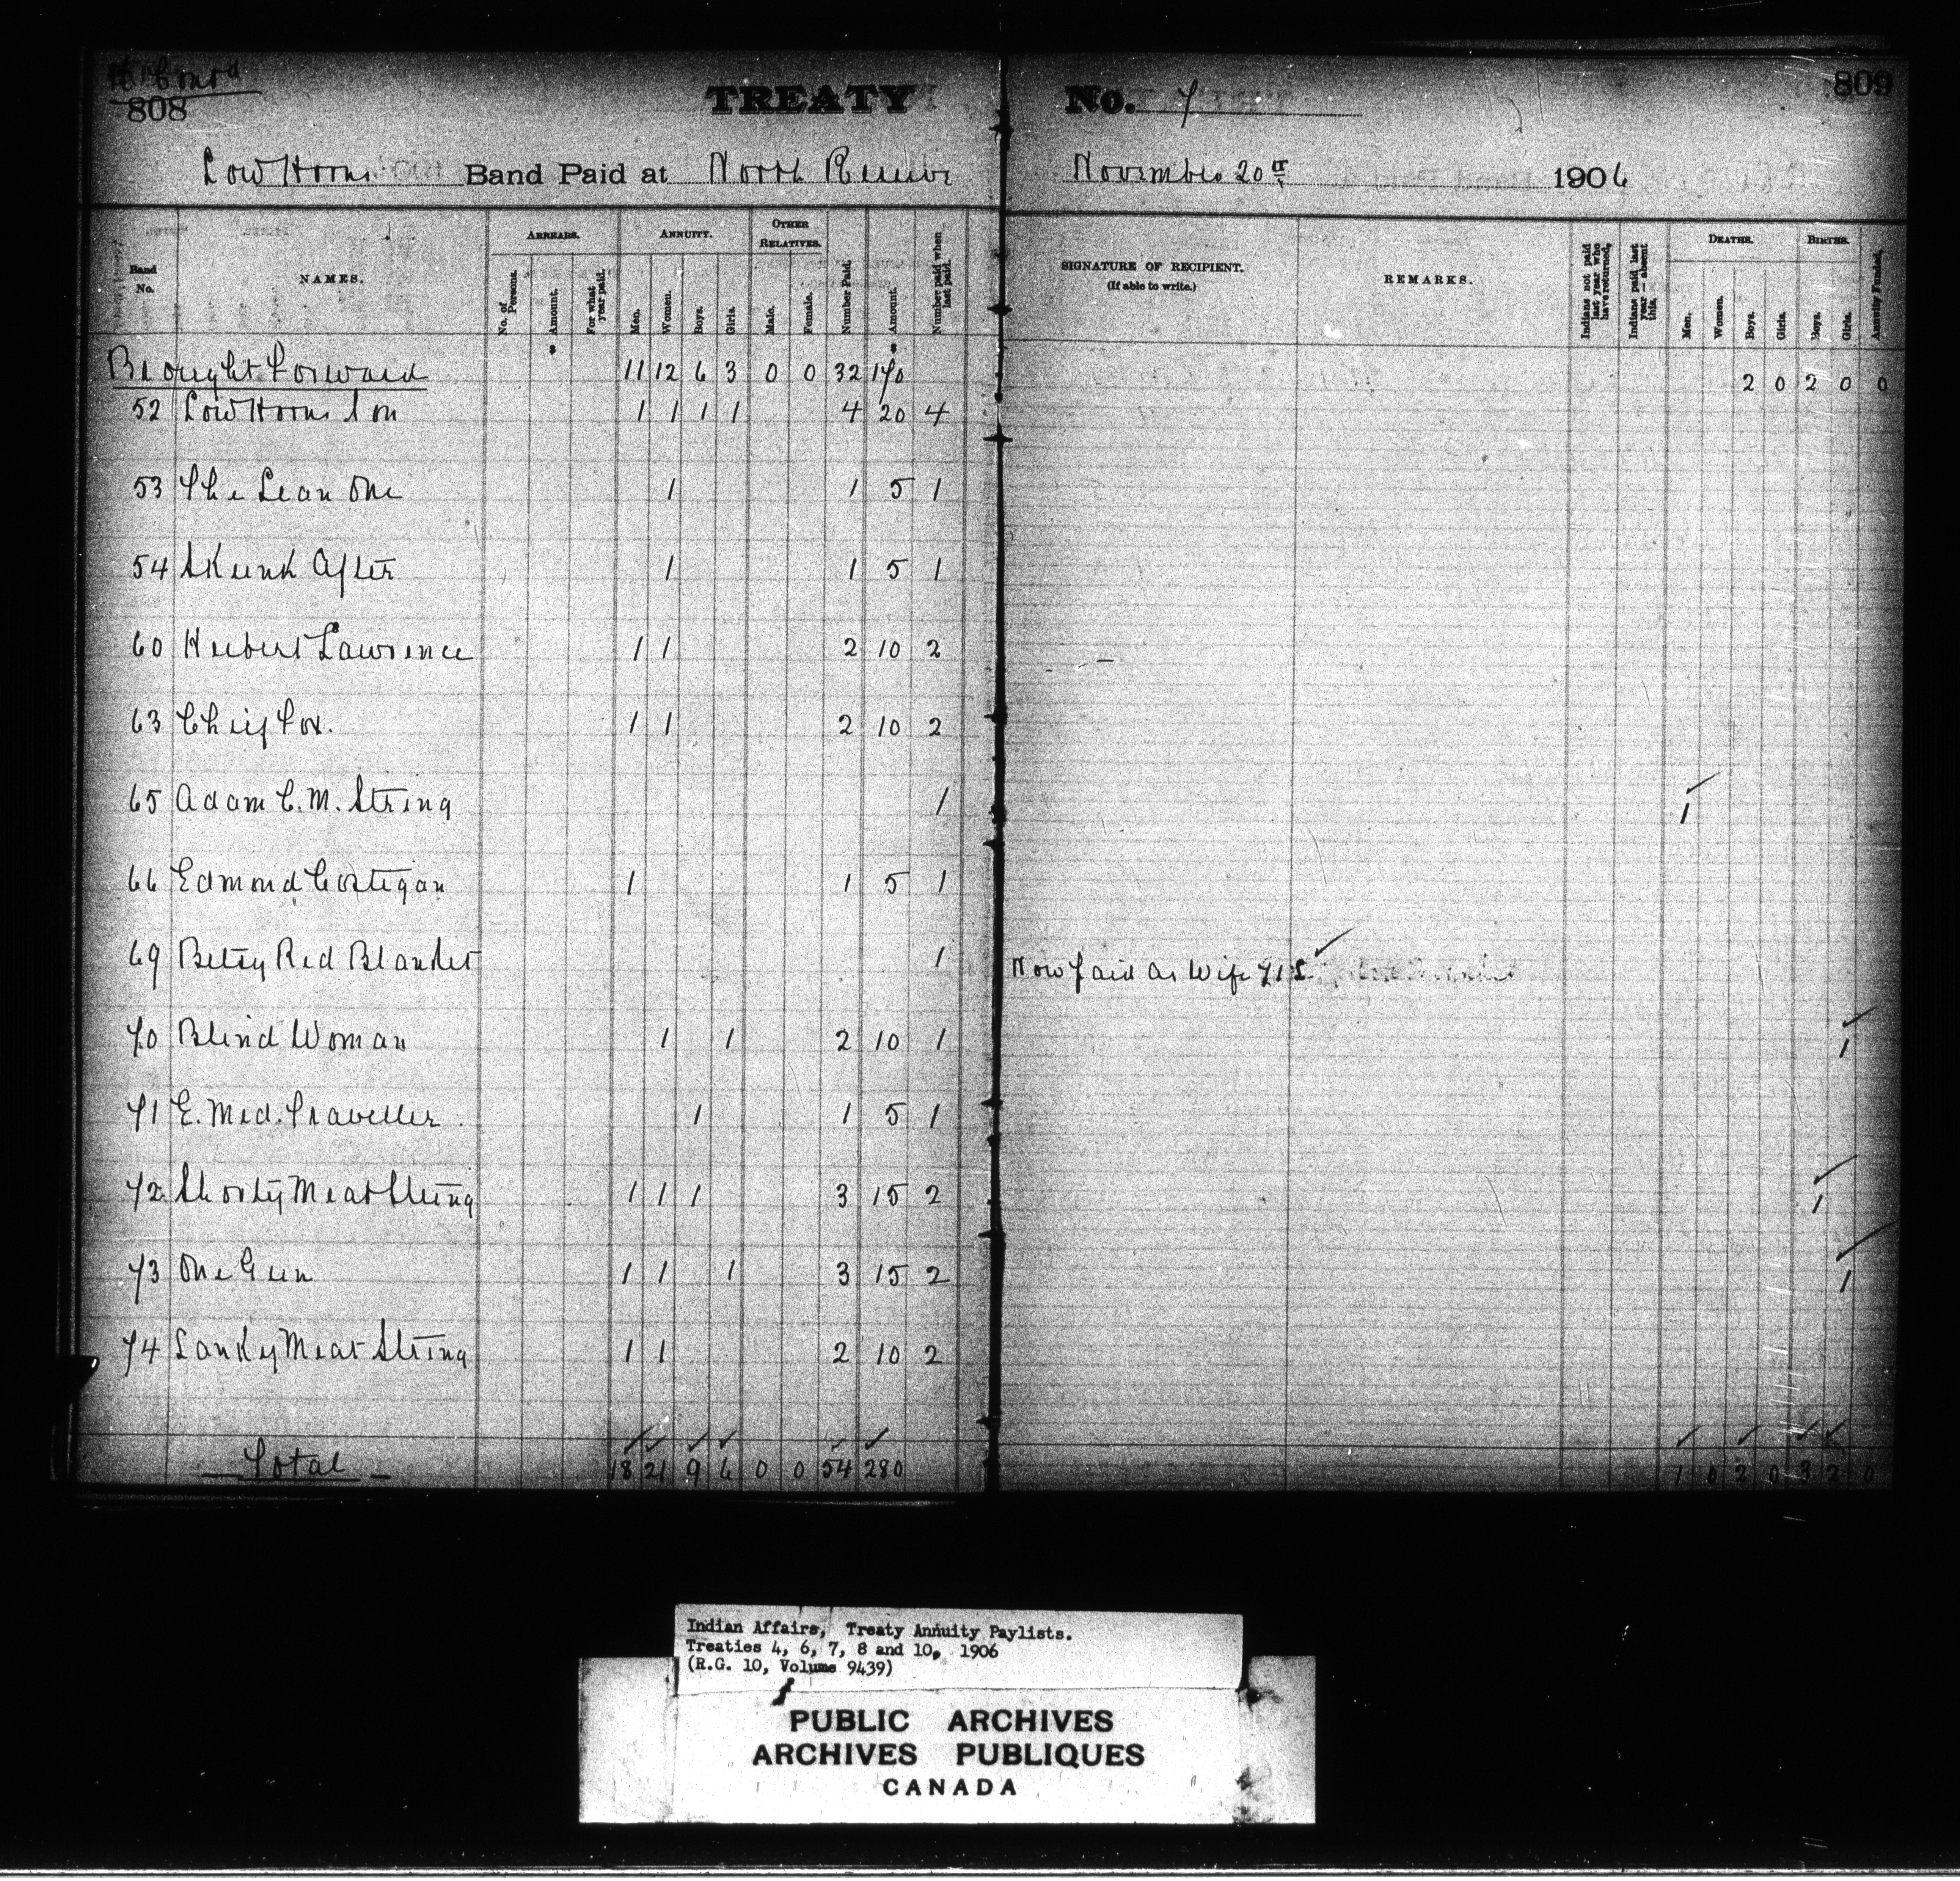 808
TREATY No. 7
809
Low Horns Band Paid at North Reserve November 20th 1906
Band No.
NAMES.
ARREARS.
No. of Persons.
Amount.
For what year paid.
ANNUITY.
Men.
Women.
Boys.
Girls.
OTHER RELATIVES.
Male.
Female.
Number Paid.
Amount.
Number paid when last paid.
SIGNATURE OF RECIPIENT.
(If able to write.)
REMARKS.
Indians not paid last year who have returned.
Indians paid last year — absent this.
DEATHS.
Men.
Women.
Boys.
Girls.
BIRTHS.
Boys.
Girls.
Annuity Funded.
Brought Forward 11 12 6 3 0 0 32 170 2 0 2 0 0
52 Low Horns Son 1 1 1 1 4 20 4
53 The Lean One 1 1 5 1
54 Skunk After 1 1 5 1
60 Herbert Lawrence 1 1 2 10 2
63 Chief Fox. 1 1 2 10 2
65 Adam C. M. String 1 1
66 Edmond Costigan 1 1 5 1
69 Betsy Red Blanket 1 Now paid as Wife
70 Blind Woman 1 1 2 10 1 1
71 E. Med. Traveller 1 1 5 1
72 Shorty Meat String 1 1 1 3 15 2 1
73 One Gun 1 1 1 3 15 2 1
74 Lanky Meat String 1 1 2 10 2
Total 18 21 9 6 0 0 54 280 1 0 2 0 3 2 0
Indian Affairs, Treaty Annuity Paylists.
Treaties 4, 6, 7, 8 and 10, 1906
(R.G. 10, Volume 9439)
PUBLIC ARCHIVES
ARCHIVES PUBLIQUES
CANADA